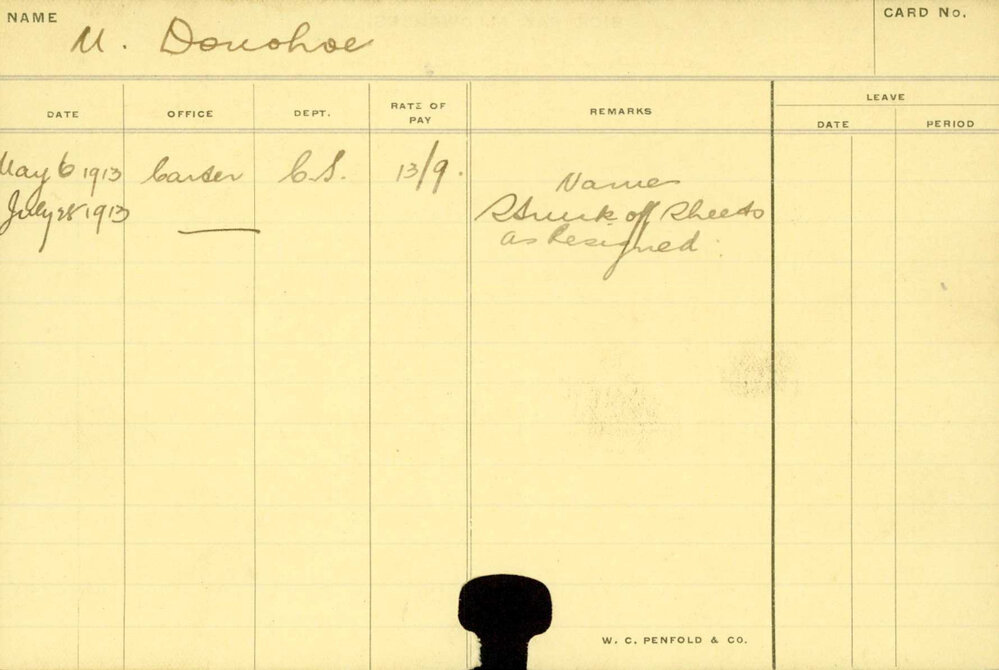 NAME
M. Donohoe
CARD No.
DATE
OFFICE
DEPT.
RATE OF PAY
REMARKS
LEAVE
DATE
PERIOD
May 6 1913 Carter C.S. 13/9.
Name
July 28 1913 Struck off Sheets
as Resigned.
W. C. PENFOLD & CO.